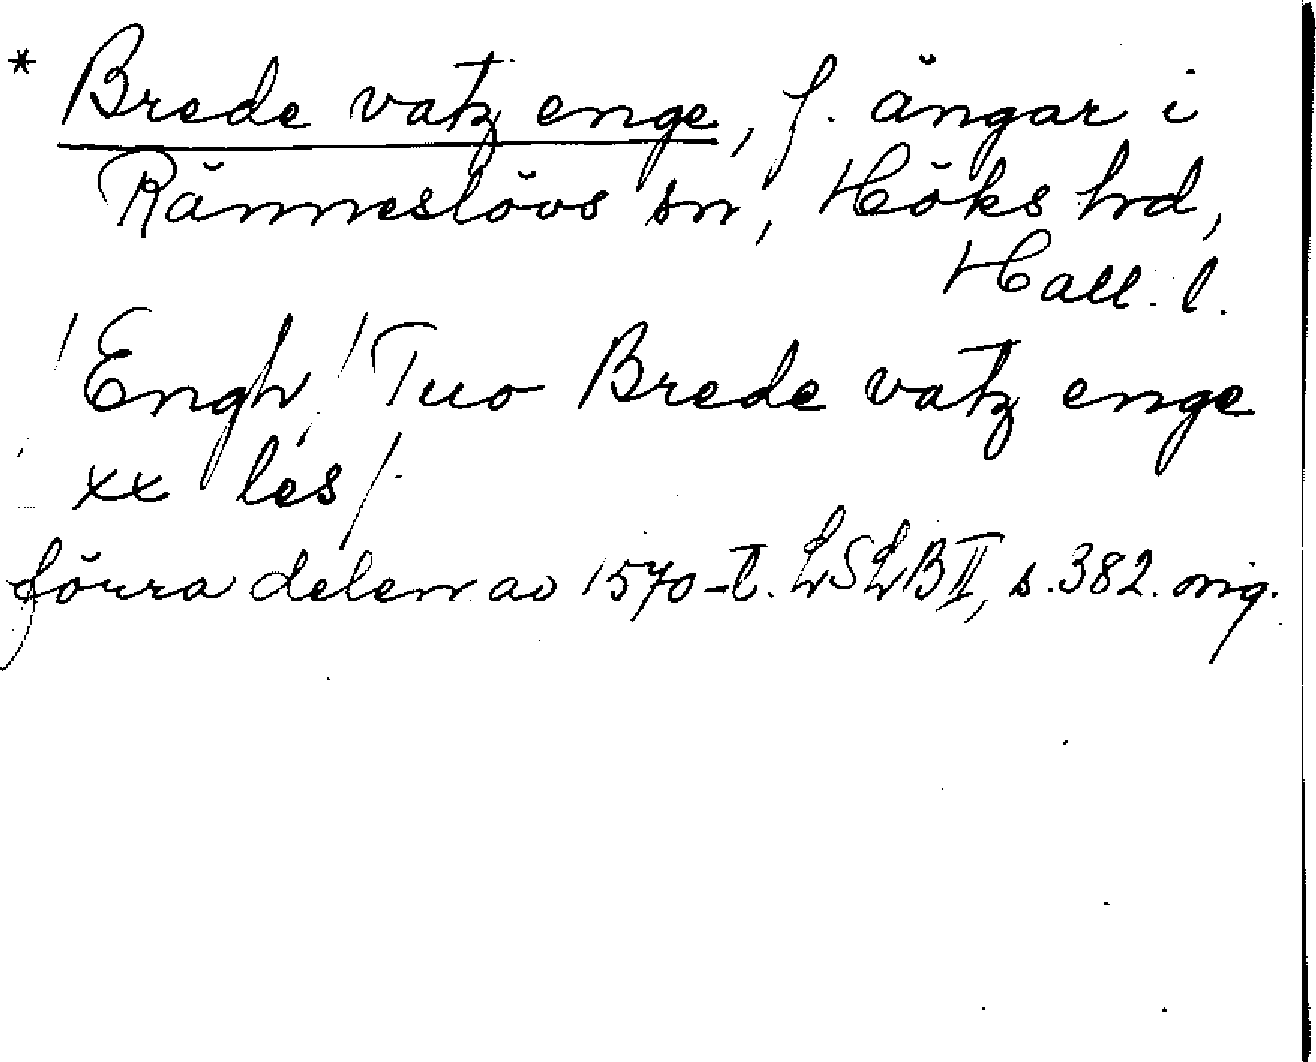 * Brede vatz enge, f. ängar i
Ränneslövs sn, Höks hrd,
Hall. l.
/Engh/ Tuo Brede vatz enge
xx les/.
förra delen av 1570-t. LSLB II, s. 382. orig.